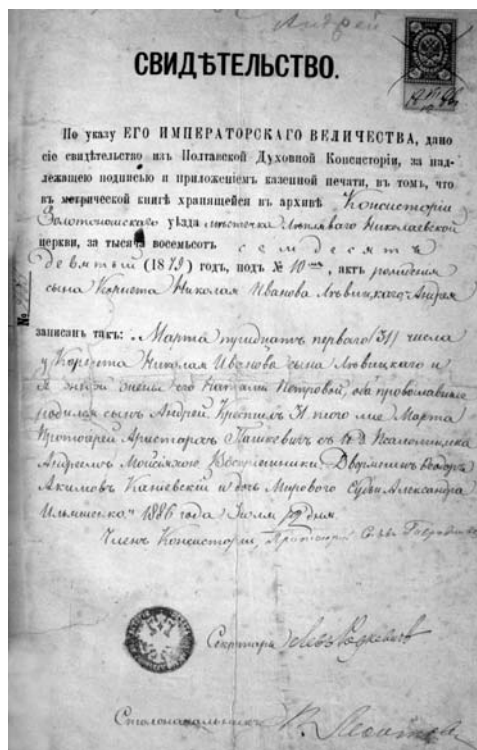 Андрей
СВИДѢТЕЛЬСТВО.
По указу ЕГО ИМПЕРАТОРСКАГО ВЕЛИЧЕСТВА, дано
сіе свидѣтельство изъ Полтавской Духовной Консисторіи, за над-
лежащею подписью и приложеніемъ казенной печати, въ томъ, что
въ метрической книгѣ хранящейся въ архивѣ Консисторіи
Золотоношскаго уѣзда мѣстечка Лепляваго Николаевской
церкви, за тысяча восемьсотъ семьдесятъ
девятый (1879) годъ, подъ № 10, актъ рожденія
сына Корнета Николая Иванова Львицкаго Андрея
№
записанъ такъ: „Марта тридцать перваго (31) числа
у Корнета Николая Иванова сына Львицкаго и
жены его Наталіи Петровой, оба православные
родился сынъ Андрей Крещенъ 31 того же Марта
Протоіерей Аристархъ Пашкевичъ съ Псаломщикомъ
Андреемъ Воспріемники: Дворянинъ Ѳедоръ
Акимовъ Каневскій и дочь Мироваго Судьи Александра
Ильяшенко" 1886 года Іюля 12 дня.
Членъ Консисторіи, Протоіерей
Секретарь
Столоначальникъ